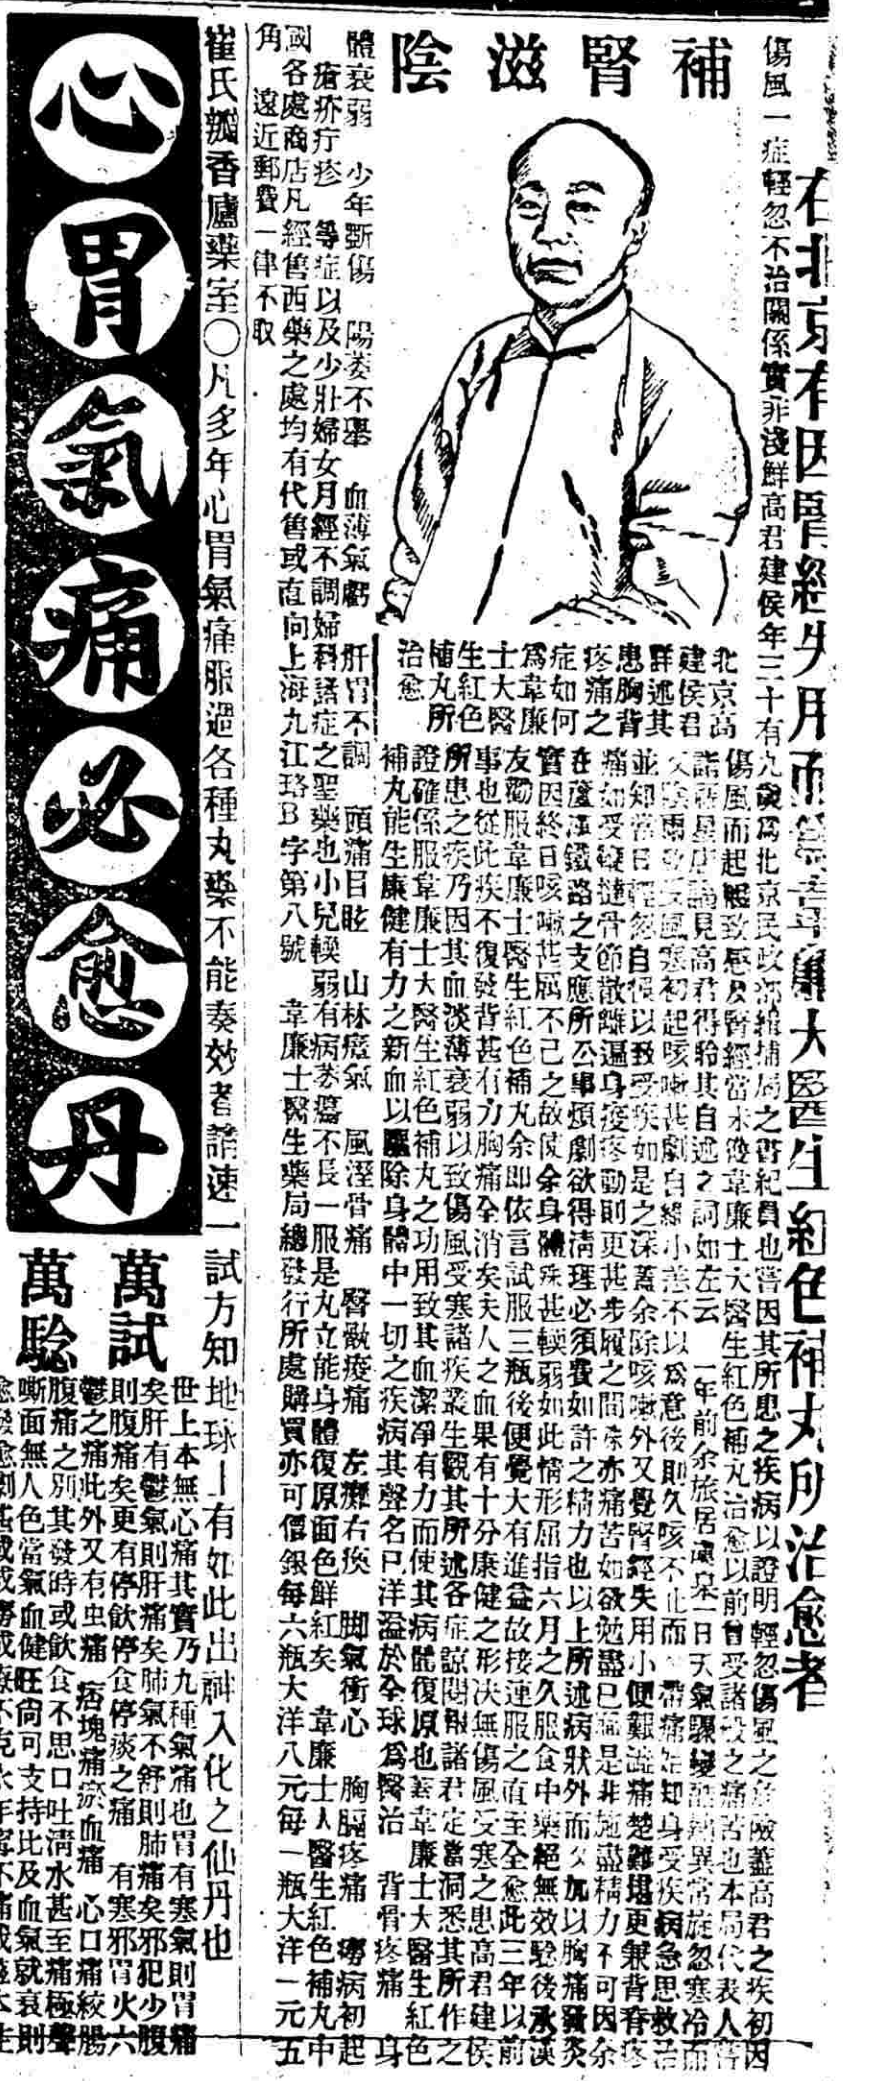 在北京有因腎經失用而為韋廉大醫生紅色補丸所治愈者
補腎滋陰
傷風一症輕忽不治關係實非淺鮮高君建侯年三十有九歲為北京民政部緝捕局之書紀員也嘗因其所患之疾病以證明輕忽傷風之危險蓋高君之疾初因
傷風而起觸致感及腎經當未從韋廉士大醫生紅色補丸治愈以前曾受諸般之痛苦也本局代表人
見高君得聆其自述之詞如左云 一年前余旅居 一日天氣驟變 異常旋忽寒冷而
風寒初起咳嗽甚劇自經小恙不以為意後則久咳不止而 帶痛始知身受疾病急思救治
並知當日輕忽自誤以致受疾如是之深蓋余除咳嗽外又覺腎經失用小便艱澁痛楚難堪更兼背脊疼
痛如受鞭撻骨節散離遍身痠疼動則更甚步履之間 亦痛苦如欲勉盡己職是非施盡精力不可因余
在蘆漢鐵路之支應所公事煩劇欲得清理必須費如許之精力也以上所述病狀外而又加以胸痛
實因終日咳嗽甚屬不已之故使余身體殊甚輭弱如此情形屈指六月之久服食中藥絕無效驗後承漢
友勸服韋廉士醫生紅色補丸余即依言試服三瓶後便覺大有進益故接連服之直至全愈此三年以前
事也從此疾不復發背甚有力胸痛全消矣夫人之血果有十分康健之形决無傷風受寒之患高君建侯
所患之疾乃因其血淡薄衰弱以致傷風受寒諸疾叢生觀其所述各症諒閱報諸君定當洞悉其所作之
證確係服韋廉士大醫生紅色補丸之功用致其血潔凈有力而使其病體復原也蓋韋廉士大醫生紅色
補丸能生康健有力之新血以驅除身體中一切之疾病其聲名已洋溢於全球為醫治 背骨疼痛 身
北京高
建侯君
詳述其
患胸背
疼痛之
症如何
為韋廉
士大醫
生紅色
補丸所
治愈
體衰弱 少年斲傷 陽萎不舉 血薄氣虧 肝胃不調 頭痛目眩 山林瘴氣 風溼骨痛 臀骰痠痛 左癱右瘓 脚氣衝心 胸膈疼痛 癆病初起
瘡疥疔疹 等症以及少壯婦女月經不調婦科諸症之聖藥也小兒輭弱有病萎靨不長一服是丸立能身體復原面色鮮紅矣 韋廉士大醫生紅色補丸中
國各處商店凡經售西藥之處均有代售或直向上海九江路B字第八號 韋廉士醫生藥局總發行所處購買亦可價銀每六瓶大洋八元每一瓶大洋一元五
角 遠近郵費一律不取
崔氏瓣香廬藥室〇凡多年心胃氣痛服過各種丸藥不能奏妙者請速一試方知地球上有如此出神入化之仙丹也
心胃氣痛必愈丹
萬試
萬驗
世上本無心痛其實乃九種氣痛也胃有寒氣則胃痛
矣肝有鬱氣則肝痛矣肺氣不舒則肺痛矣邪犯少腹
則腹痛矣更有停飲停食停痰之痛 有寒邪胃火六
鬱之痛此外又有虫痛 痞塊痛瘀血痛 心口痛絞腸
腹痛之別其發時或飲食不思口吐清水甚至痛極聲
嘶面無人色當氣血健旺尙可支持比及血氣就衰則